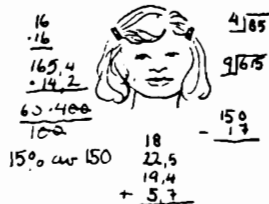 16
·16
165,4
·14,2
60·400
100
15% av 150
4)85
9)675
150
- 17
18
22,5
19,4
+ 5,7